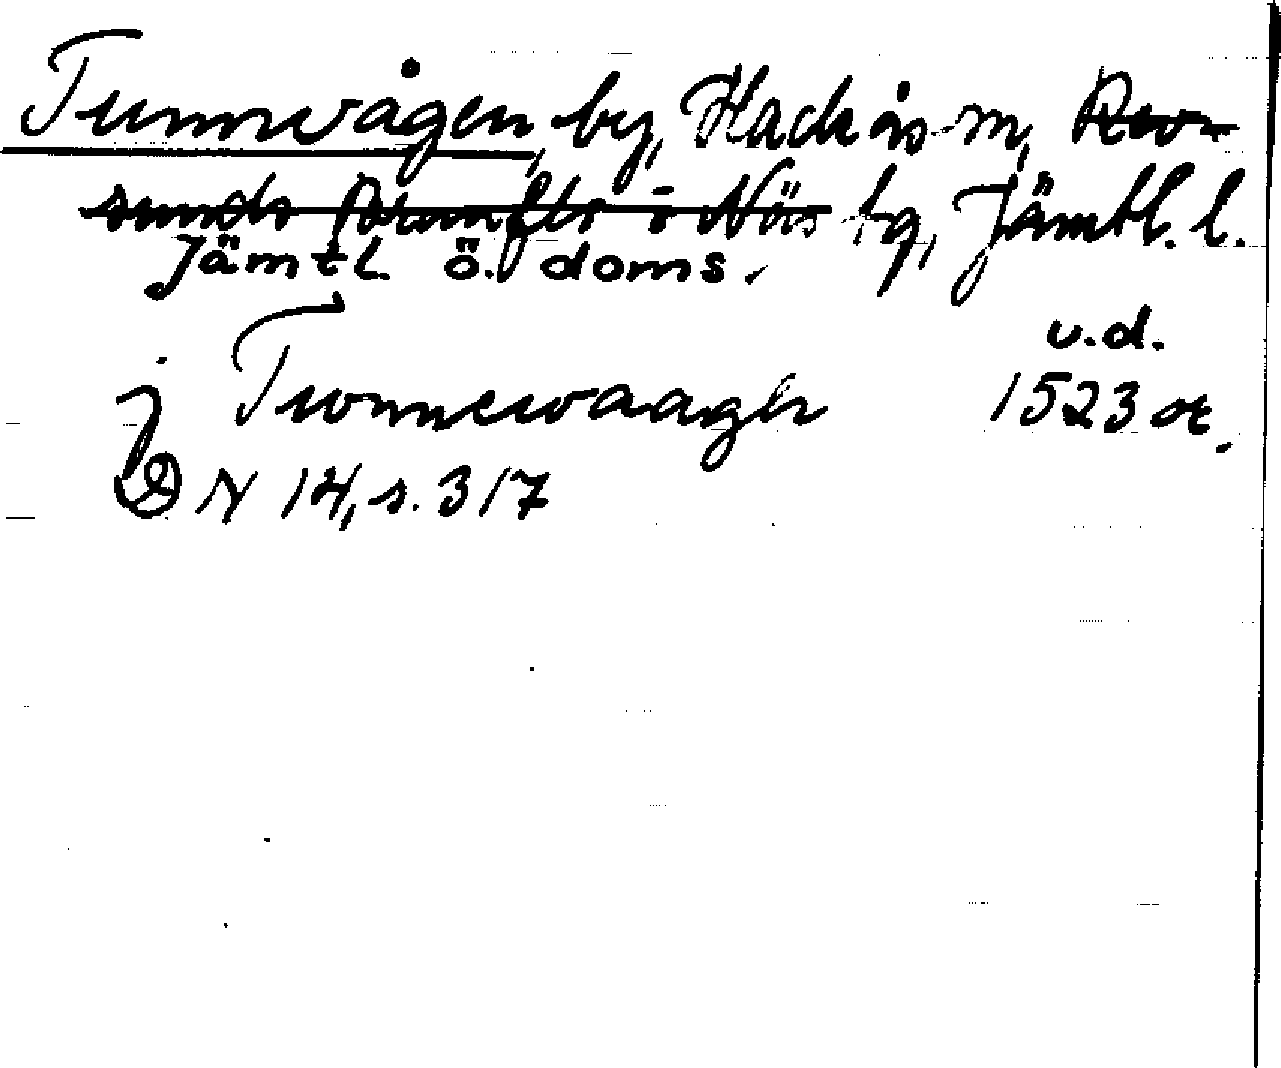 Tunnvågen, by, Hackås sn, Rev-
sunds, Brunflo o Näs tg, Jämtl. l.
Jämtl. ö. doms.
u.d.
j Twnnewaagh 1523 or.
DN 14, s. 317